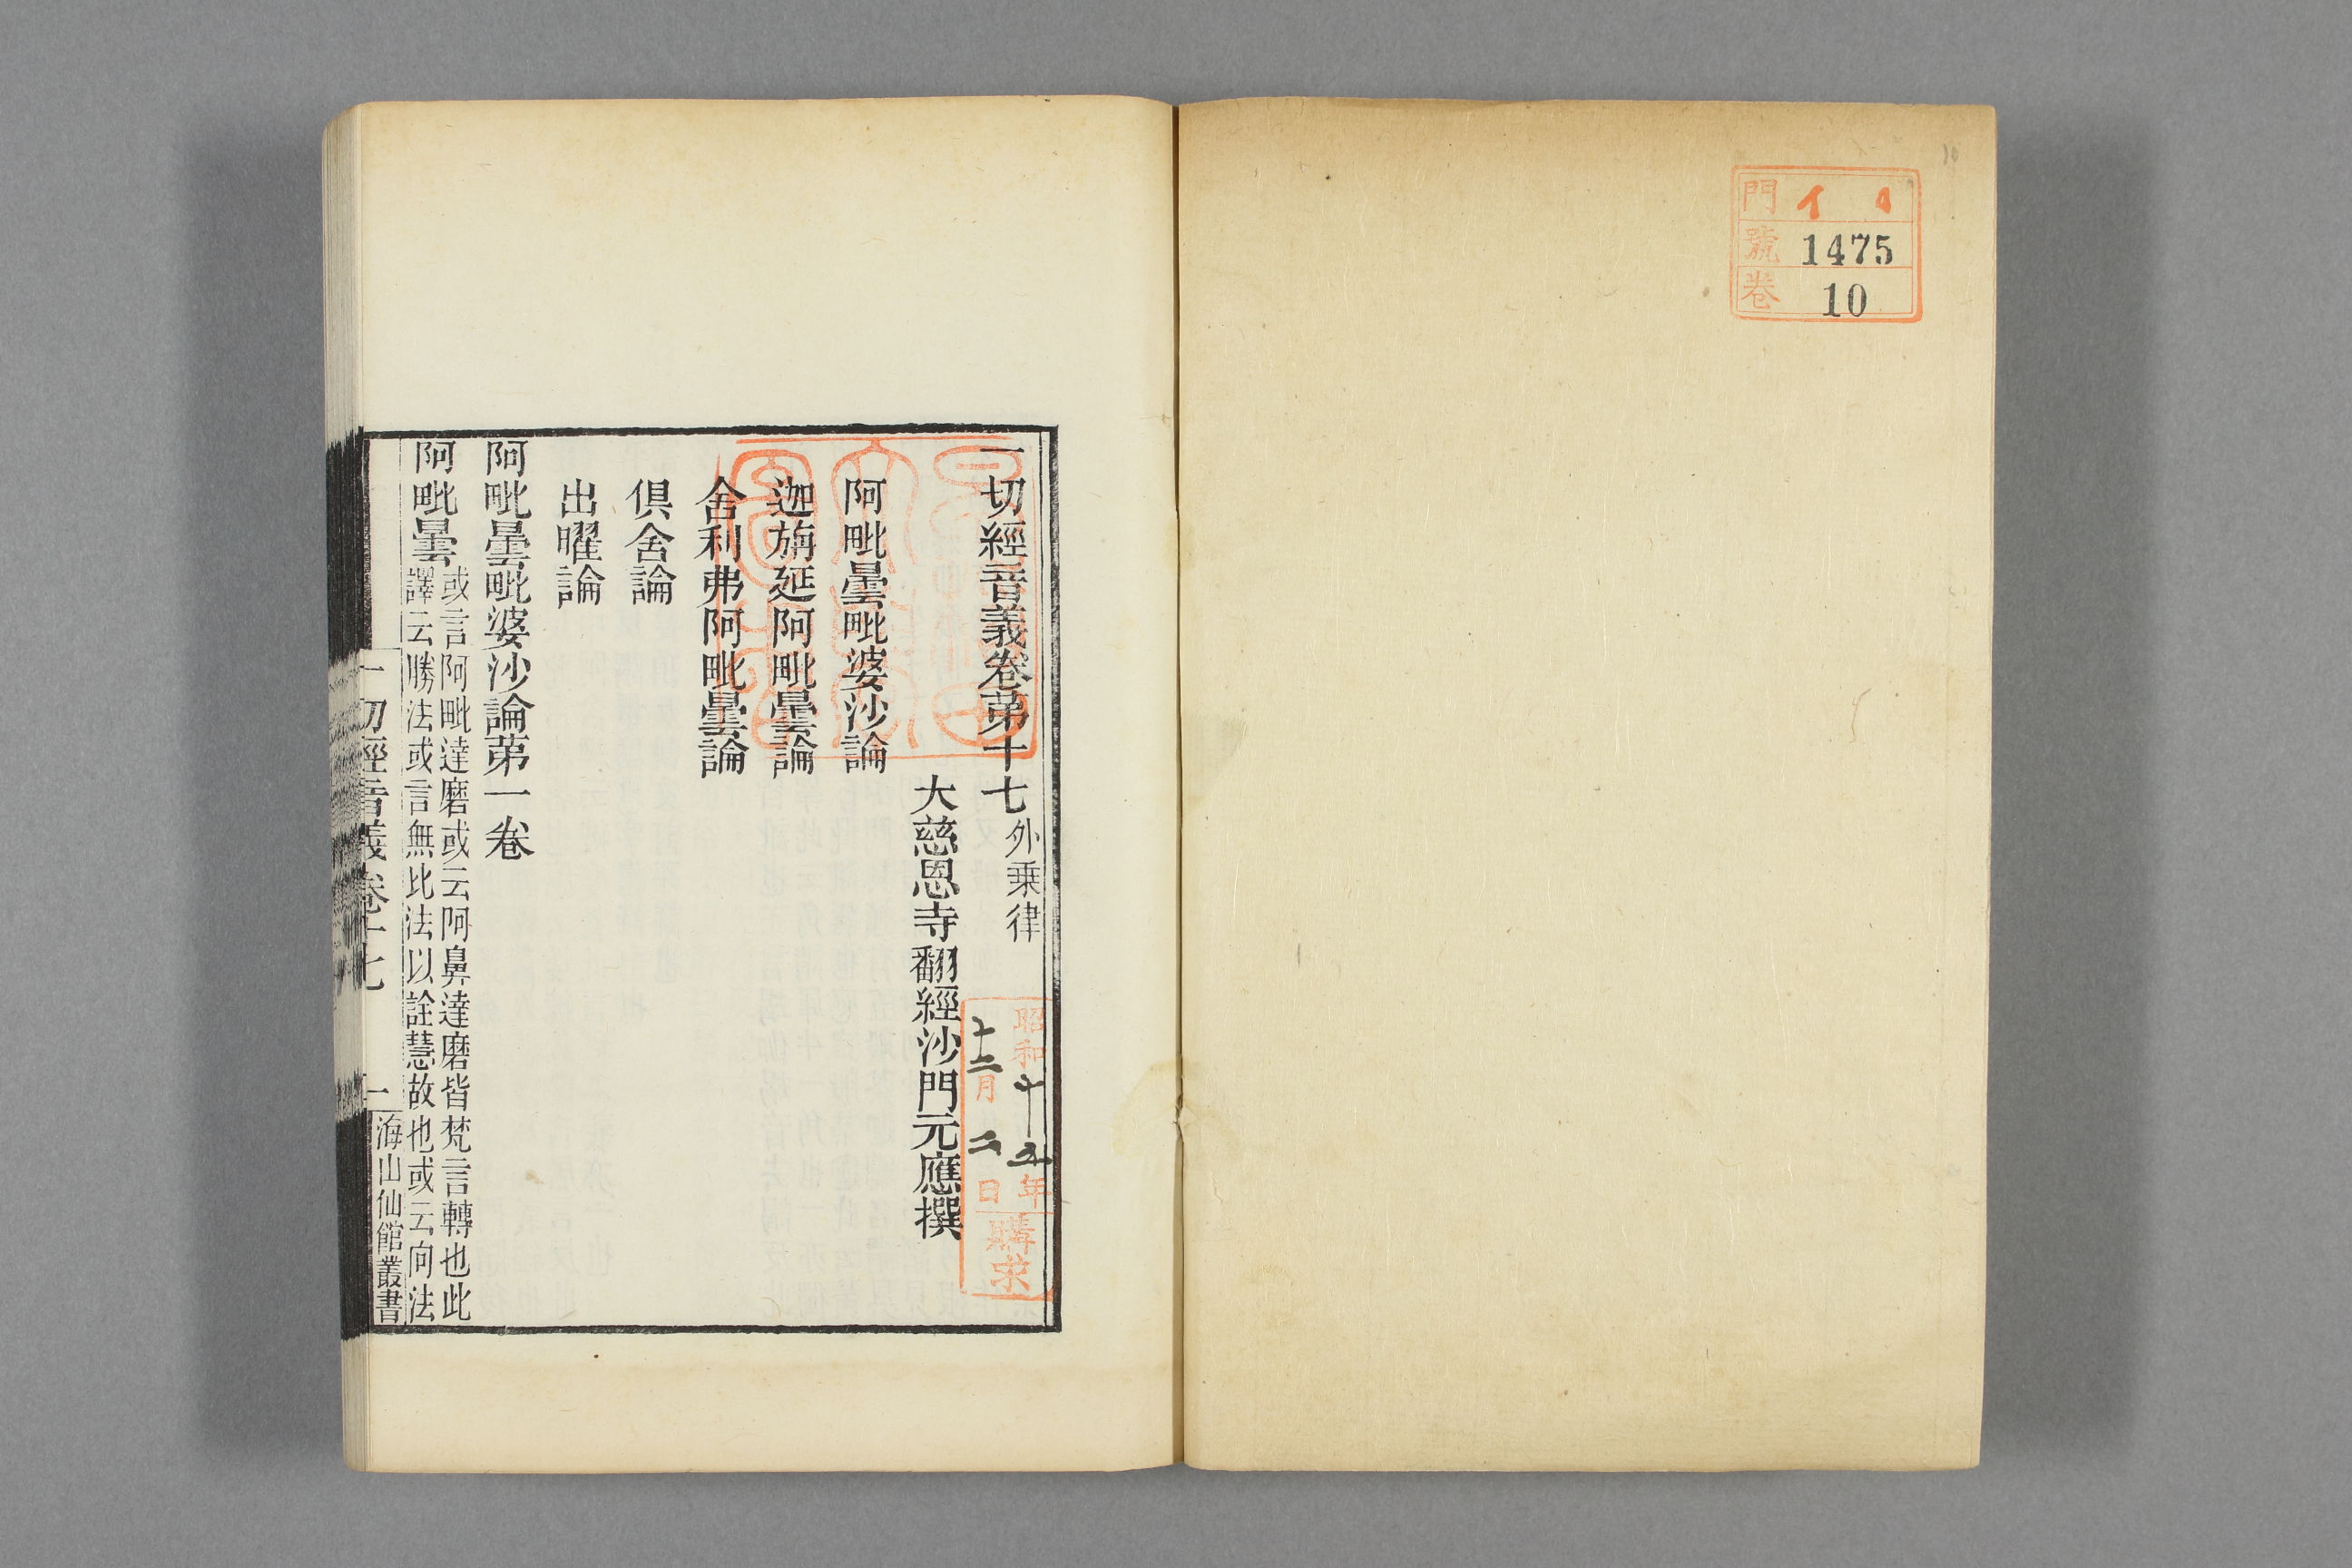 門 イ 4
號 1475
卷 10
一切經音義卷苐十七外乗律
大慈恩寺翻經沙門元應撰
阿毗曇毗婆沙論
迦旃延阿毗曇論
舍利弗阿毗曇論
俱舍論
出曜論
阿毗曇毗婆沙論苐一卷
阿毗曇
或言阿毗達磨或云阿鼻達磨皆梵言轉也此
譯云勝法或言無比法以詮慧故也或云向法
一切經音義卷十七 一
海山仙館叢書
昭和十五年
十二月二日
購求